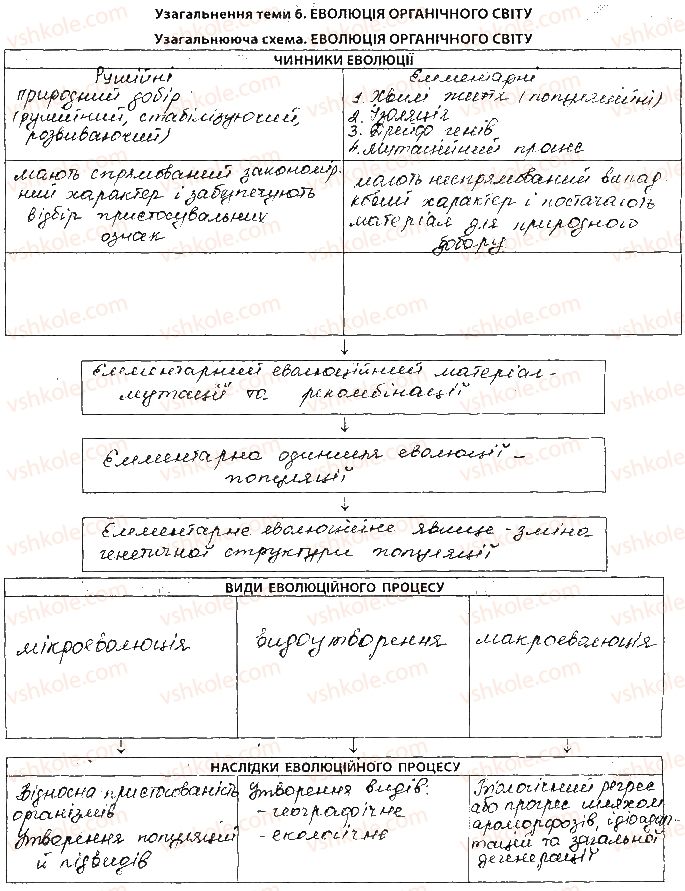 Узагальнення теми 6. ЕВОЛЮЦІЯ ОРГАНІЧНОГО СВІТУ
Узагальнююча схема. ЕВОЛЮЦІЯ ОРГАНІЧНОГО СВІТУ
ЧИННИКИ ЕВОЛЮЦІЇ
Рушійні
природний добір
(рушийний, стабілізуючий,
розвиваючий)
Елементарні
1. Хвилі життя (популяційні)
2. Ізоляція
3. Дрейф генів
4. Мутаційний процес
мають спрямований закономір
ний характер і забупечують
відбір пристосувальних
ознак
мають неспрямований випад
ковий характер і постачають
матеріал для природного
добору
Елементарний еволюційний матеріал -
мутації та рекомбінації
Елементарна одиниця еволюції -
популяції
Елементарне еволюційне явище - зміна
генетичної структури популяції
ВИДИ ЕВОЛЮЦІЙНОГО ПРОЦЕСУ
мікроеволюція
видоутворення
макроеволюція
НАСЛІДКИ ЕВОЛЮЦІЙНОГО ПРОЦЕСУ
Відносна пристосованість
організмів
Утворення популяцій
й підвидів
Утворення видів:
- географічне
- екологічне
Біологічний регрес
або прогрес шляхом
ароморфозів, ідіоадап
тацій та загальної
дегенерації
vshkole.com